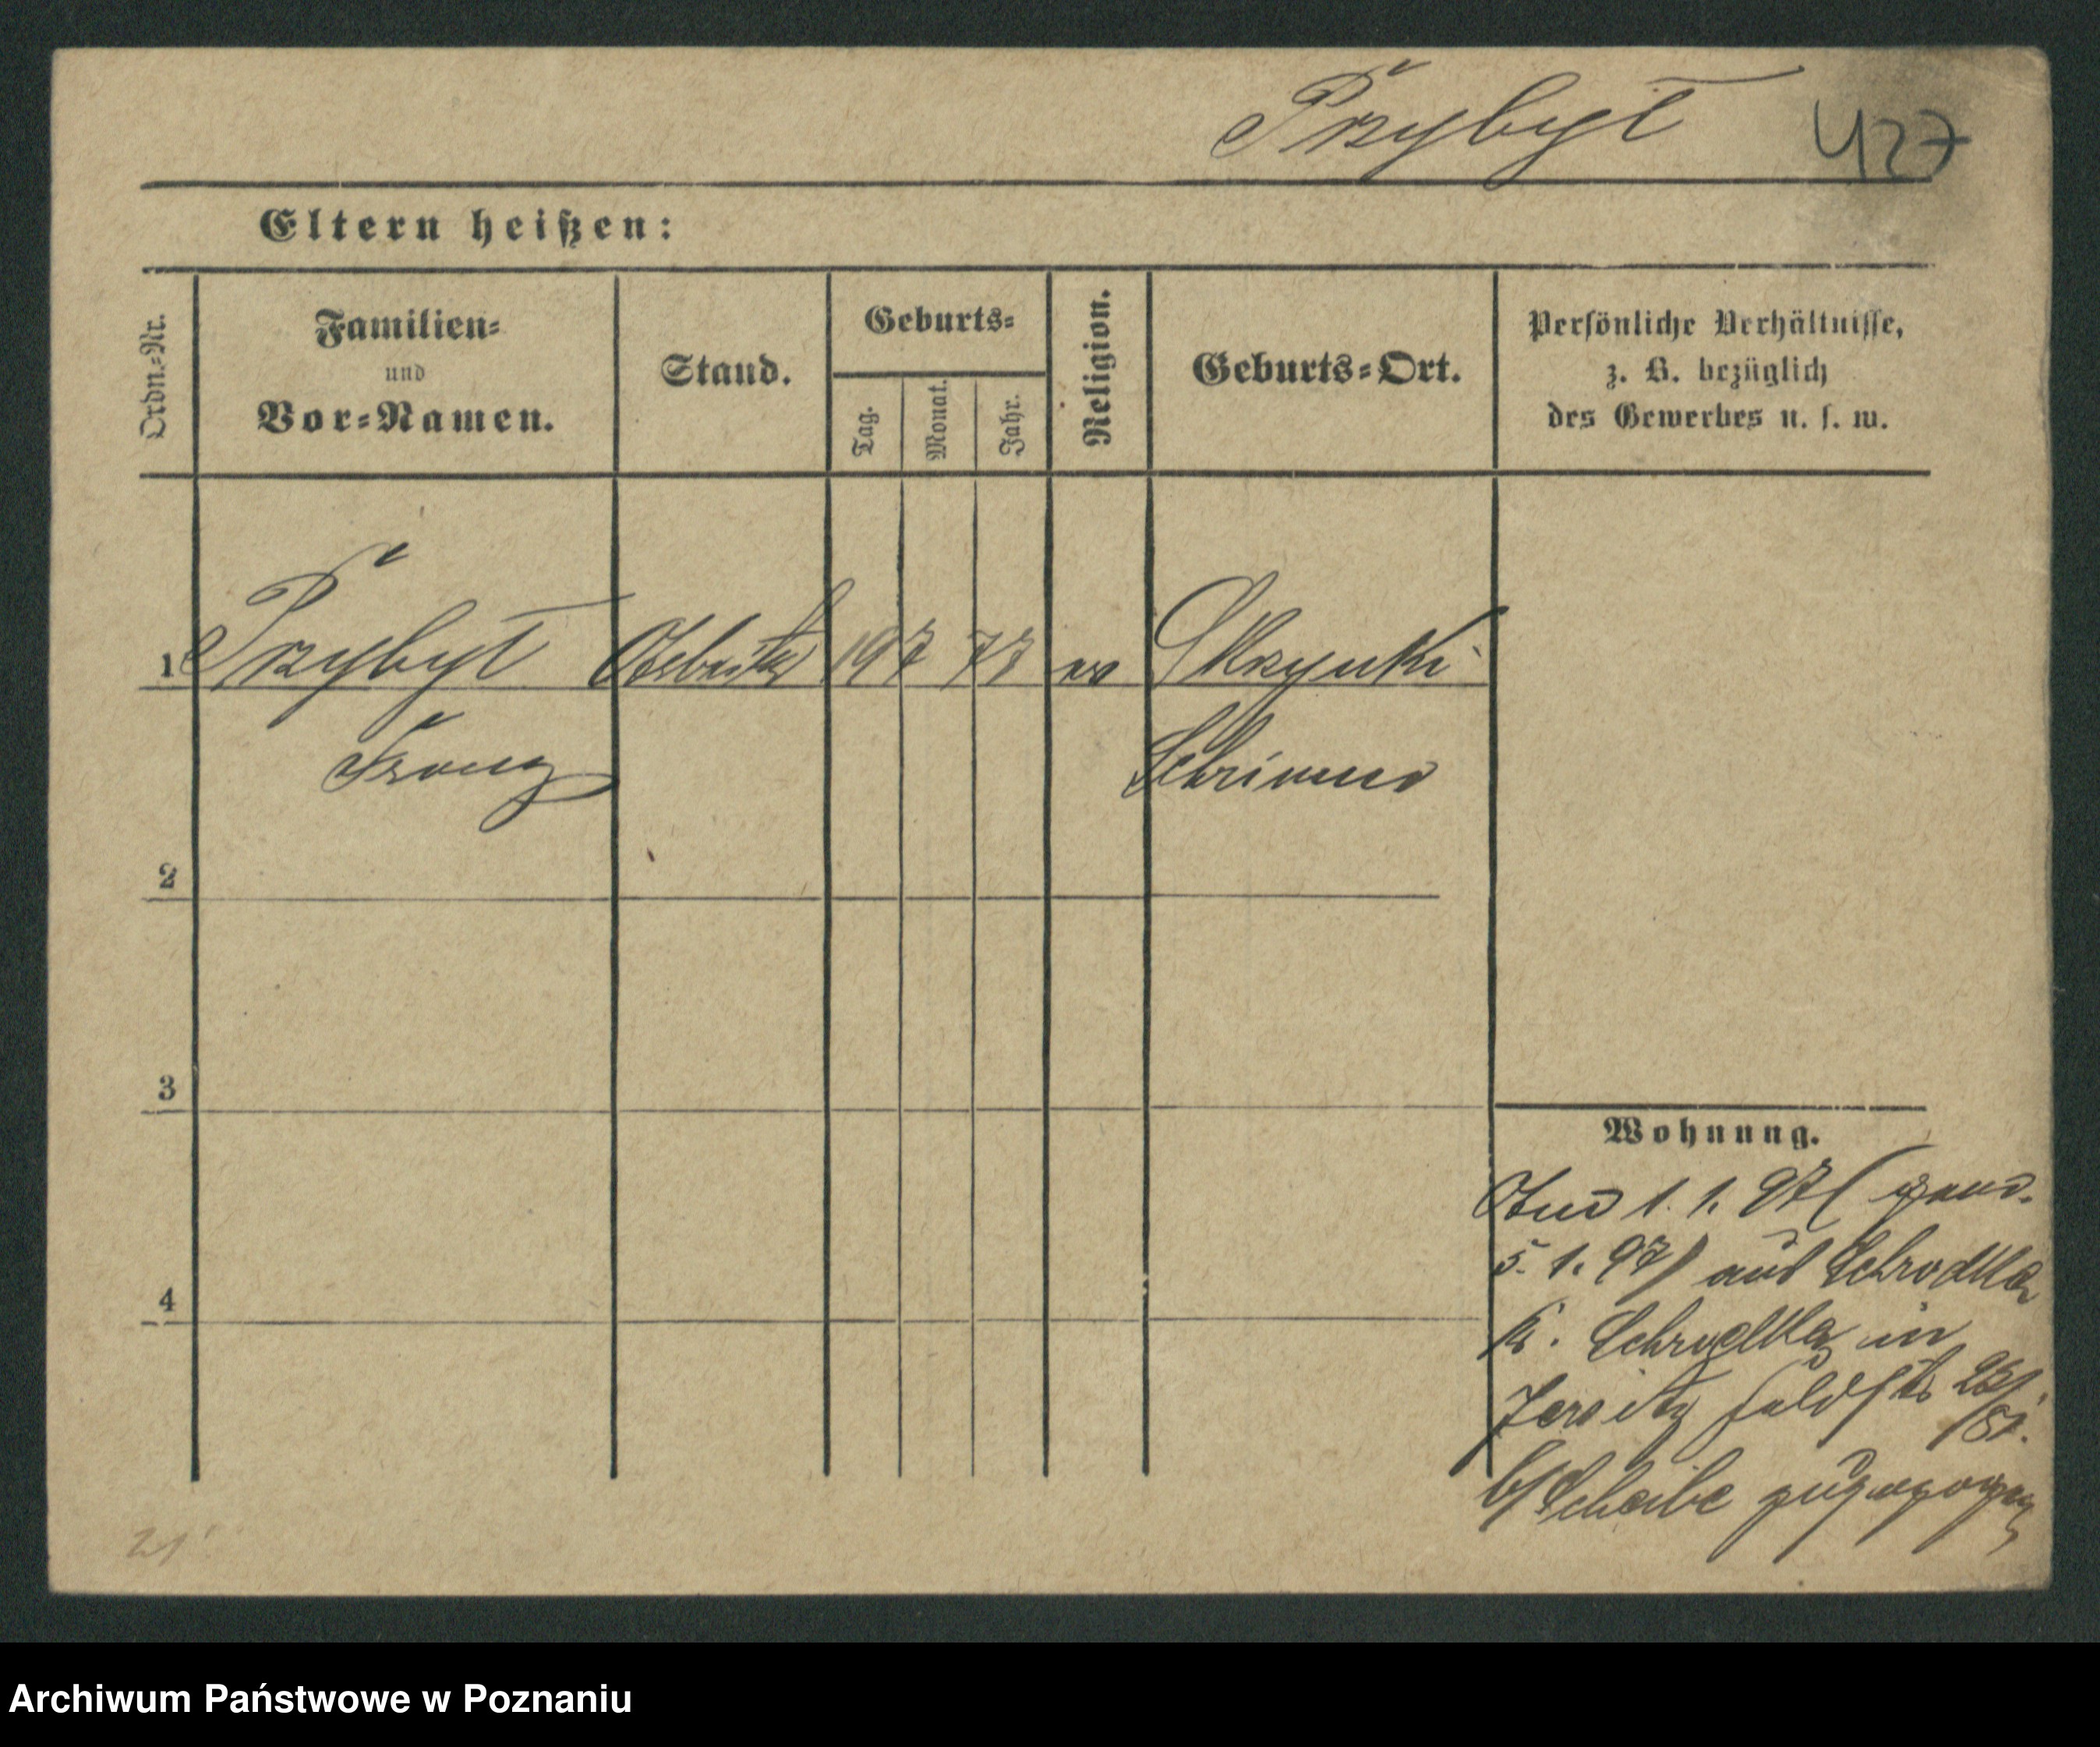 Przybył 427
Eltern heißen:
Ordn.-Nr.
Familien-
und
Vor-Namen.
Stand.
Geburts-
Tag.
Monat.
Jahr.
Religion.
Geburts-Ort.
Persönliche Verhältnisse,
z. B. bezüglich
des Gewerbes u. s. w.
1 Przybył Arbeiter 19 7 77 Skrzynki
Franz Schrimm
2
3
4
Wohnung.
Am 1. 1. 97 (
5. 1. 97) aus Schrodka
K. Schrodka in
Jersitz
b/Scheibe zugezogen
21
Archiwum Państwowe w Poznaniu